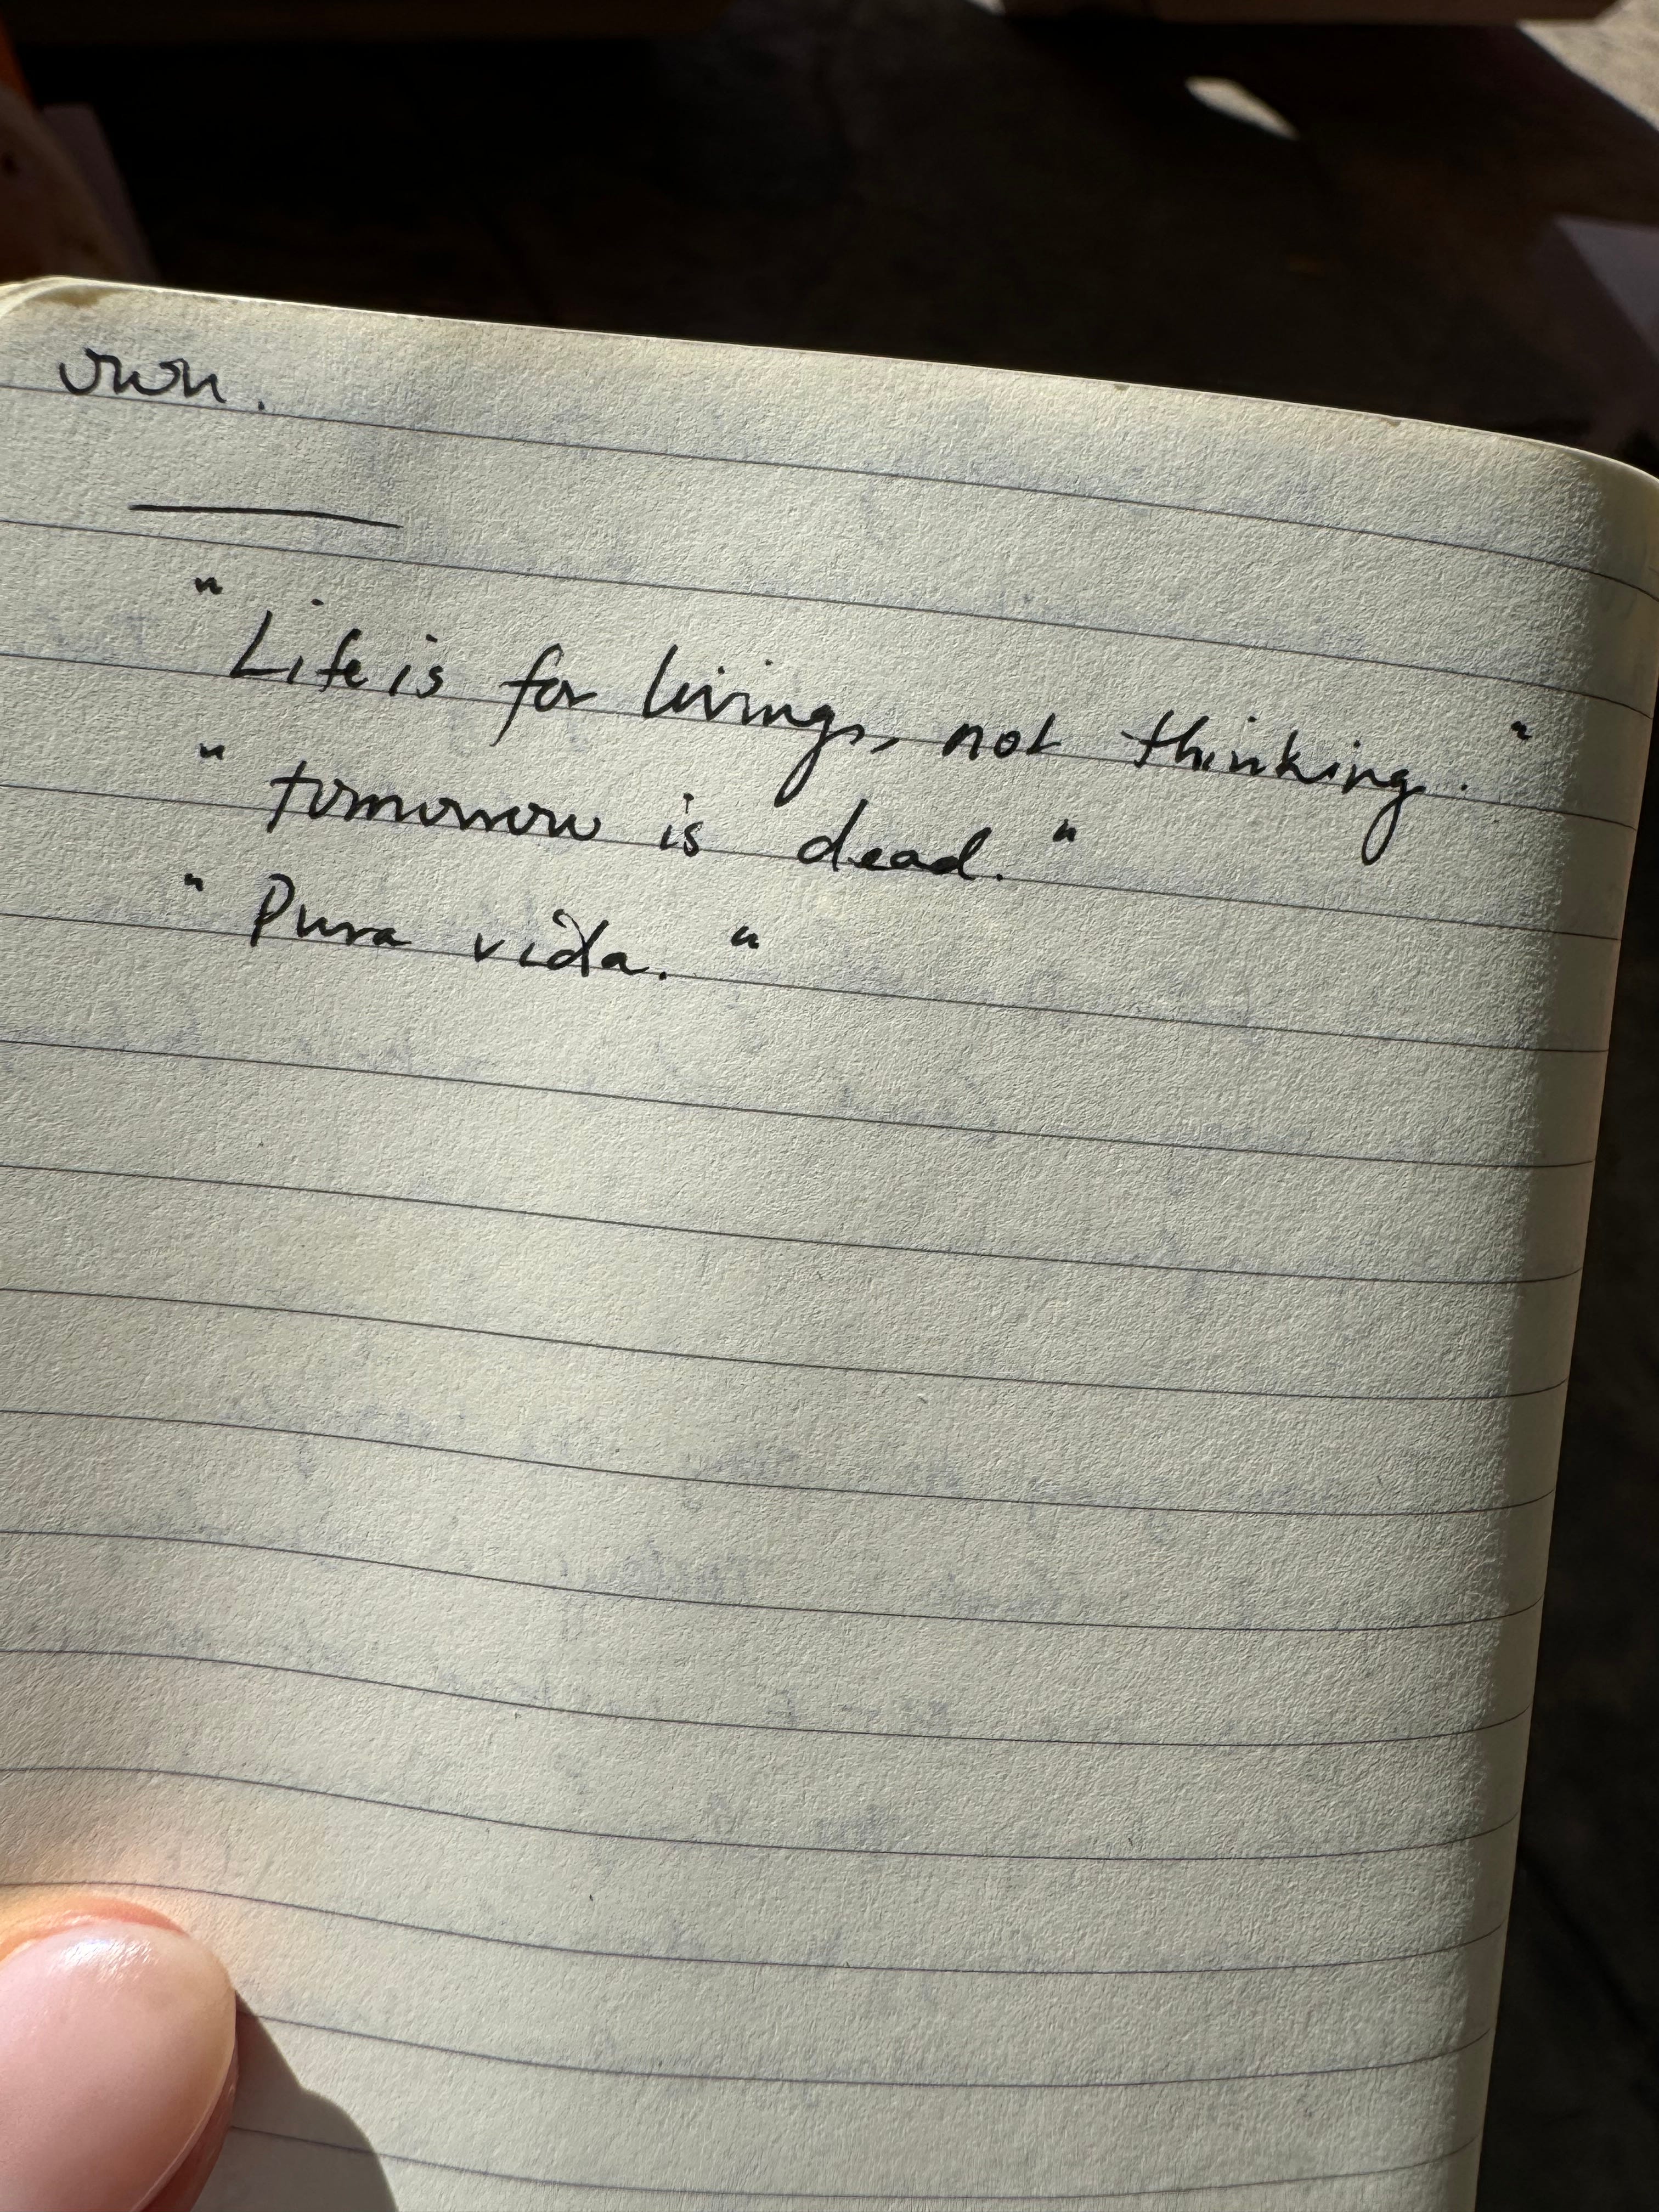 own.
"Life is for living, not thinking."
"tomorrow is dead."
"Pura vida."